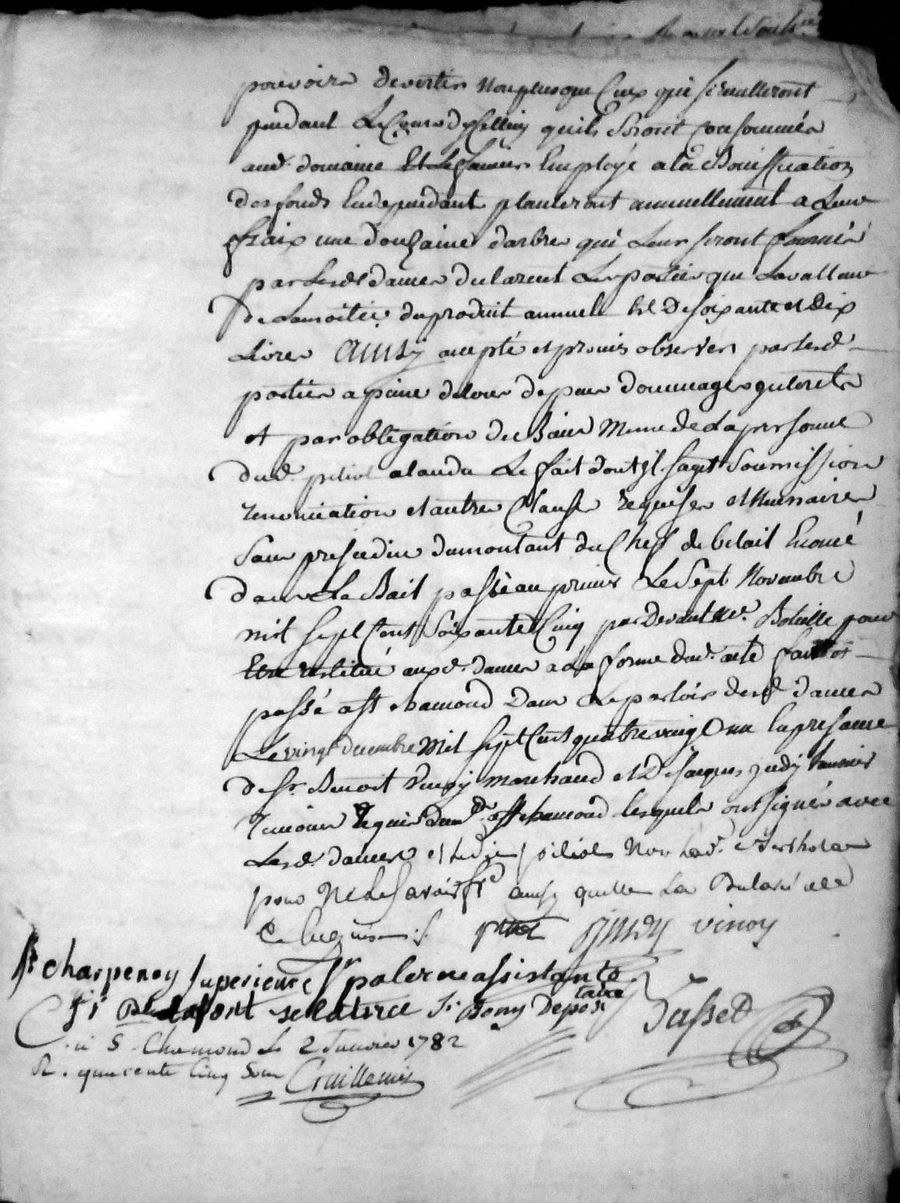 pouvoir divertir non plus que Ceux qui se cuilleront
pendant Le Cours d'Icelluy quils seront consommés
aud. domaine Et Le fumier Employé a la Bonification
des fonds Independant planteront annuellement a Leur
fraix une douzaine darbres qui Leur seront fournis
par Lesd. dames declarent Les parties que La valleur
De La moitié du produit annuel Est De soixante et dix
Livres Ainsy accepté et promis observer par lesd.
parties a peine de tous depens dommages interets
et par obligation de Biens Meme de La personne
dud. piliot a Le fait dont Il sagit soumission
renonciation et autres Clauses requises et Necessaires
Sans prejudice du montant du Chept de betail Enoncé
dans Le Bail passé au premier Le Sept Novembre
mil sept Cent soixante Cinq par Devant Me. pour
Etre restitué auxd. dames a La forme dud. acte fait et
passé a St chamond Dans Le parloir desd. dames
Le vingt decembre Mil sept Cent quatre vingt Un En presence
de Sr. Benoit Marchand et De Jacques Judy
Temoins Requis dud. St chamond lesquels ont signés avec
Lesd. dames et led. piliot Non Lad.
pour Ne Le Savoir fe. ainsy quelle La Declaré
De Ce Enquise
piliot Judy vinoy
Sr charpenay superieure Sr palerne assistante
Sr. Delafont selatrice Sr Bony Depositaire Jusset
S. Chamond Le 2 Janvier 1782
R. quarente Cinq Sous